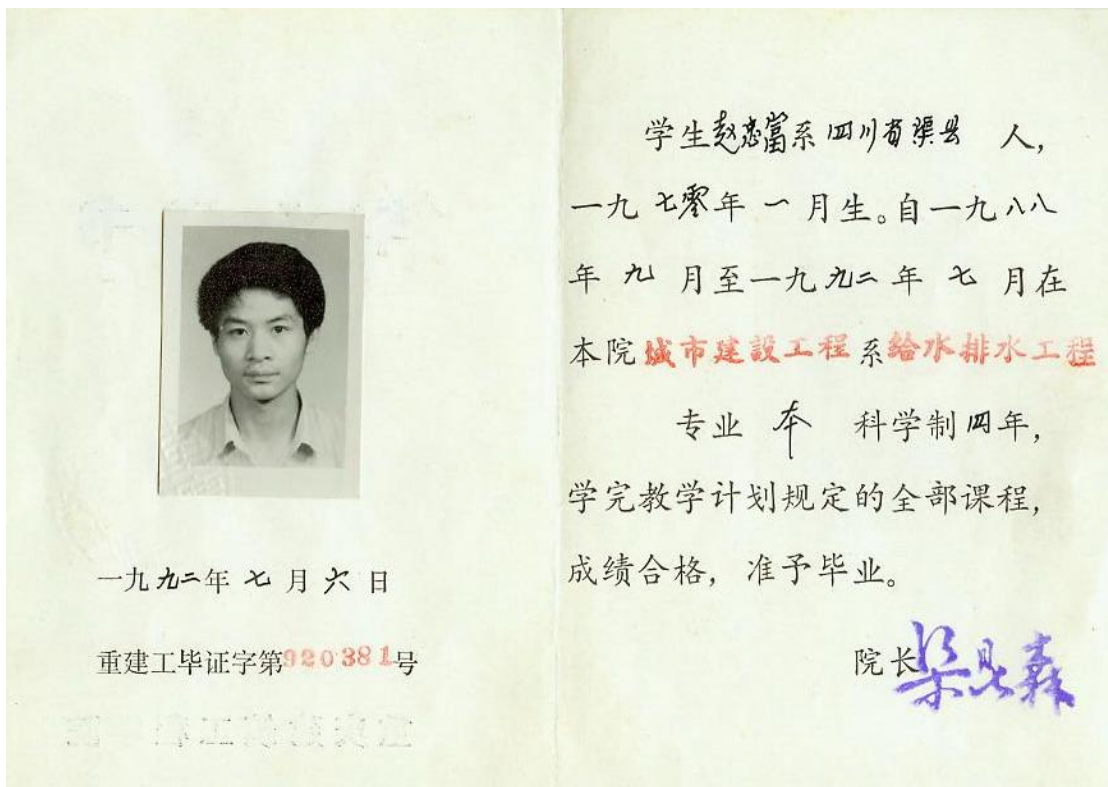 一九九二年 七 月 六 日
重建工毕证字第920381号
学生赵忠富系四川省渠县 人，
一九七零年 一 月生。自一九八八
年 九 月至一九九二年 七 月在
本院城市建設工程系給水排水工程
专业 本 科学制四年，
学完教学计划规定的全部课程，
成绩合格，准予毕业。
院长